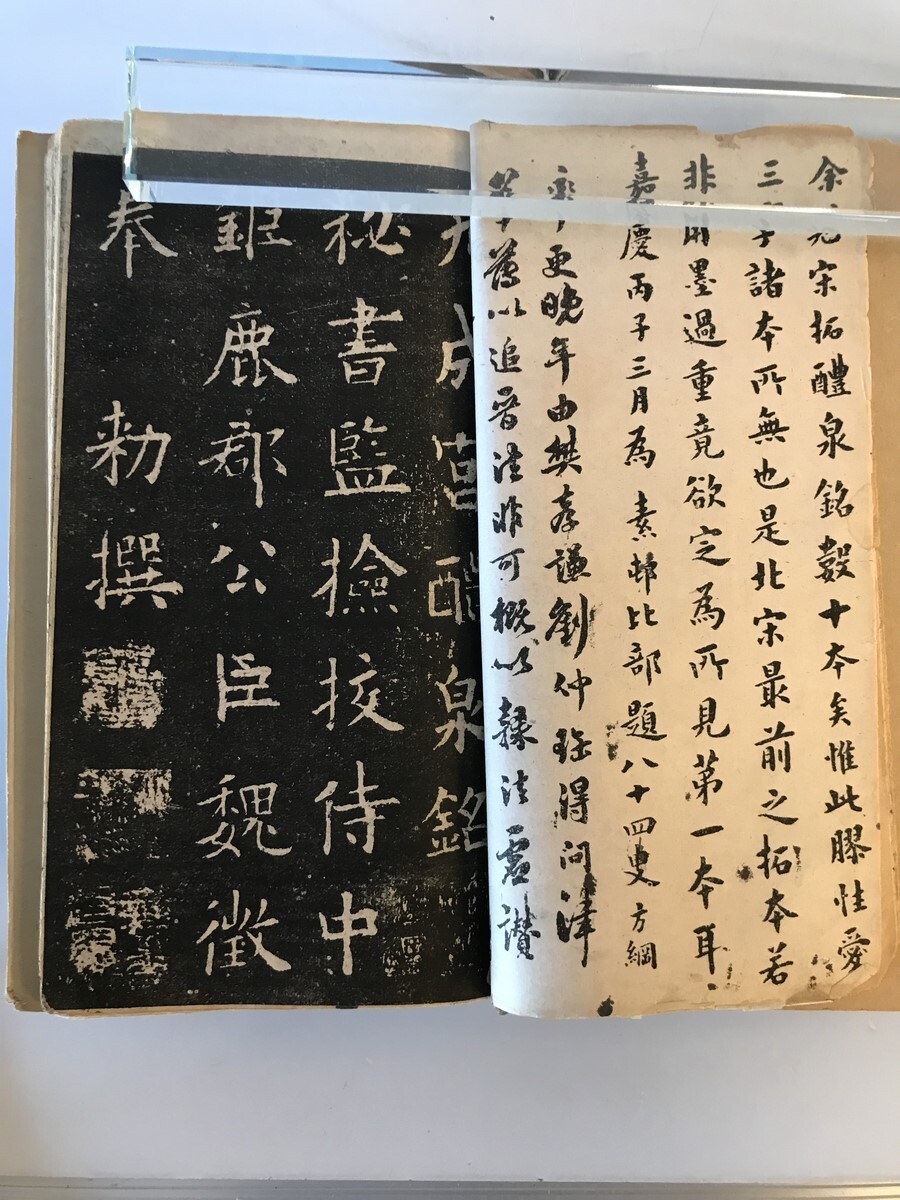 余見宋拓醴泉銘數十本矣惟此膠性愛
三子諸本所無也是北宋最前之拓本若
非用墨過重竟欲定為所見第一本耳
嘉慶丙子三月為素邨比部題八十四叟方綱
更晚年由樊孝謙劉仲得問津
舊以追晉法非可概以隸法讚
成宮醴泉銘
祕書監撿挍侍中
鉅鹿郡公臣魏徵
奉勑撰